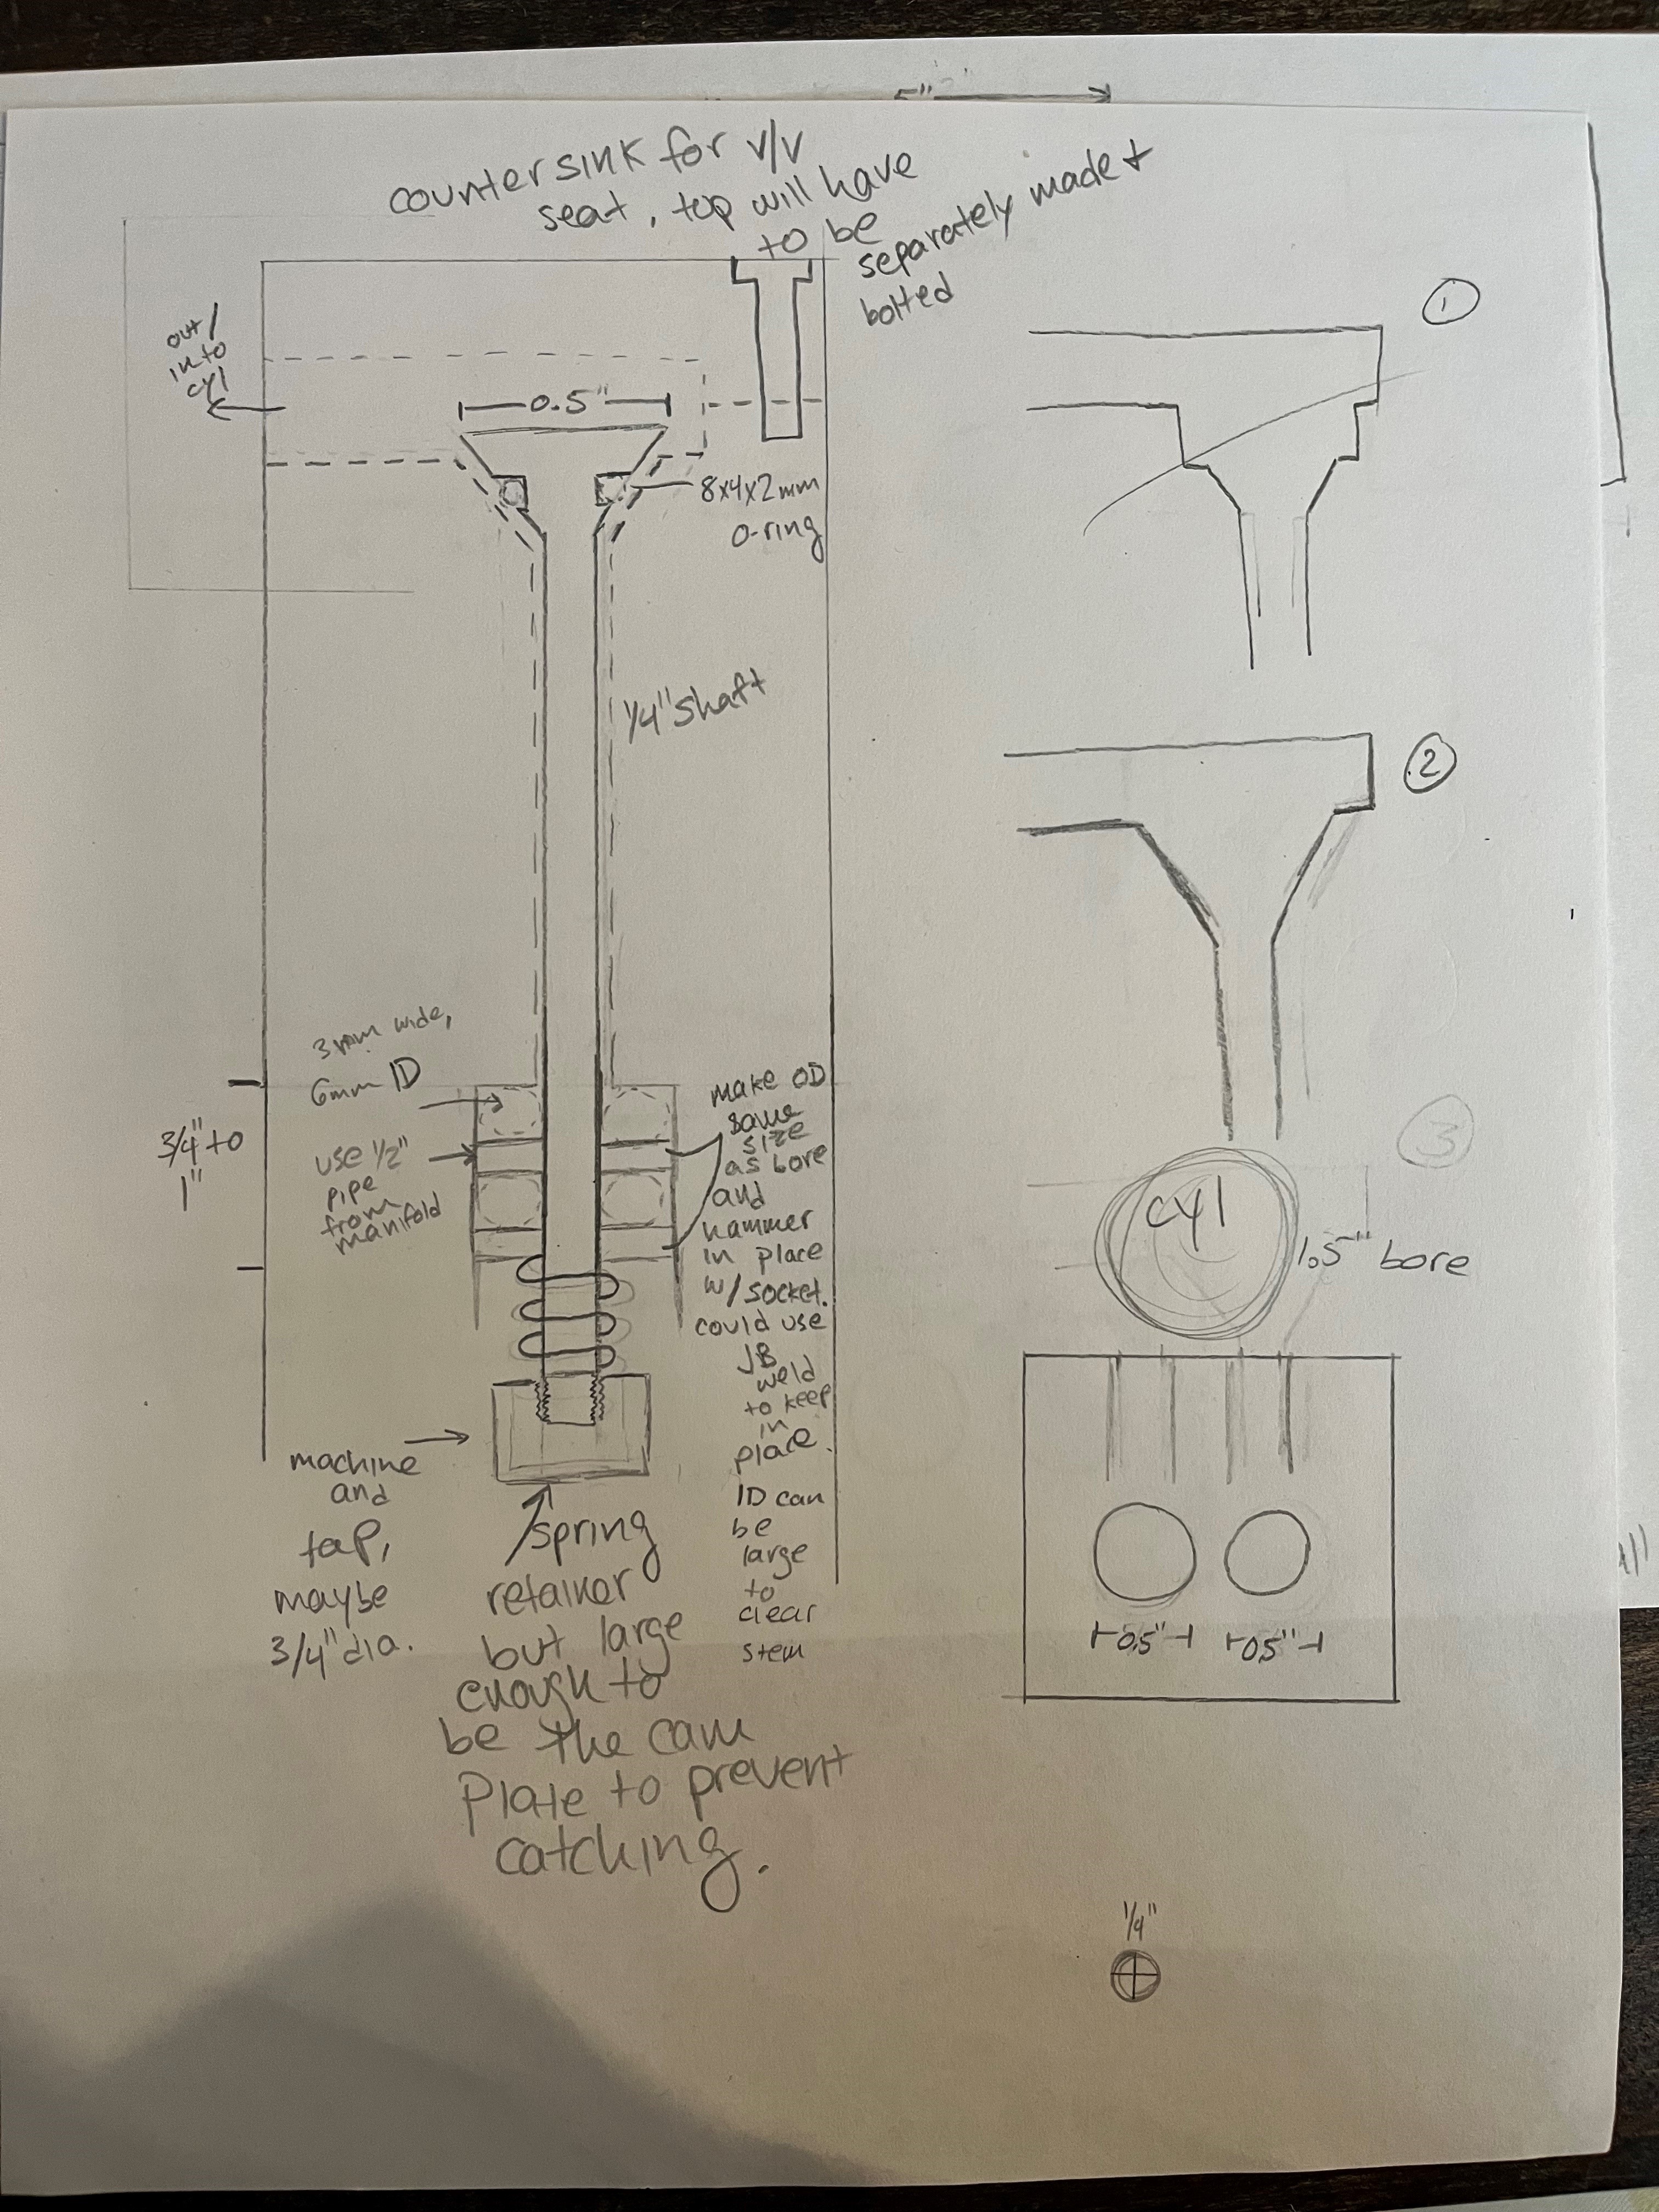 5"
counter sink for v/v
seat, top will have
to be
separately made +
bolted
out/
into
cyl
0.5"
8x4x2mm
O-ring
1/4" shaft
3mm wide,
6mm ID
3/4" to
1"
use 1/2"
pipe
from
manifold
make OD
same
size
as bore
and
hammer
in place
w/ socket.
could use
JB
weld
to keep
in
place.
ID can
be
large
to
clear
stem
machine
and
tap,
maybe
3/4" dia.
spring
retainer
but large
enough to
be the cam
plate to prevent
catching.
1
2
3
cyl
1.5" bore
0.5"
0.5"
1/4"